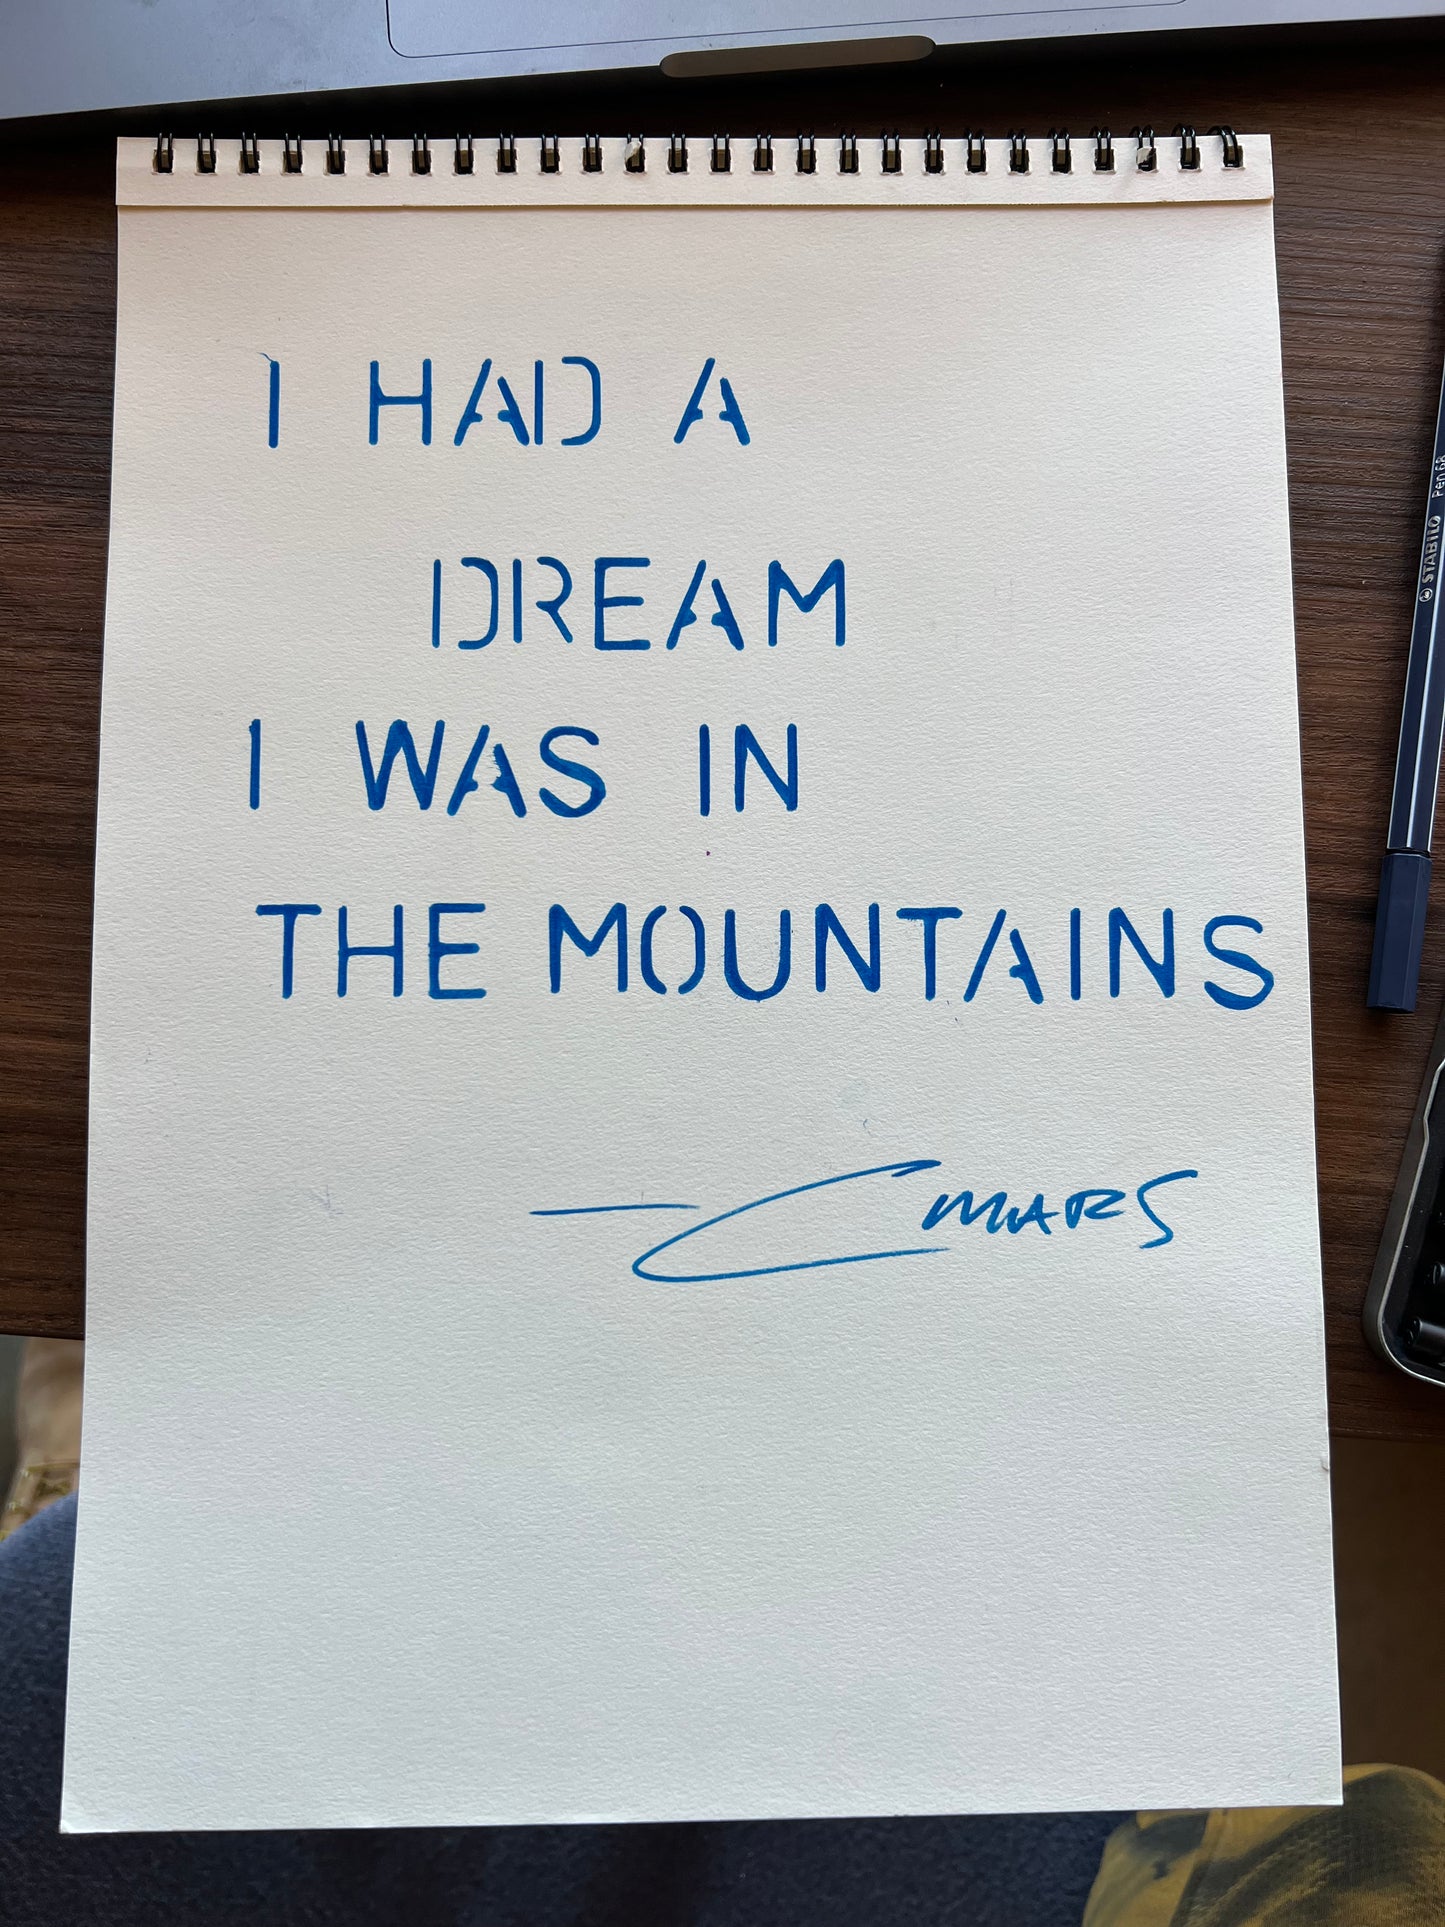 I HAD A
DREAM
I WAS IN
THE MOUNTAINS
— C MARS
STABILO Pen 68